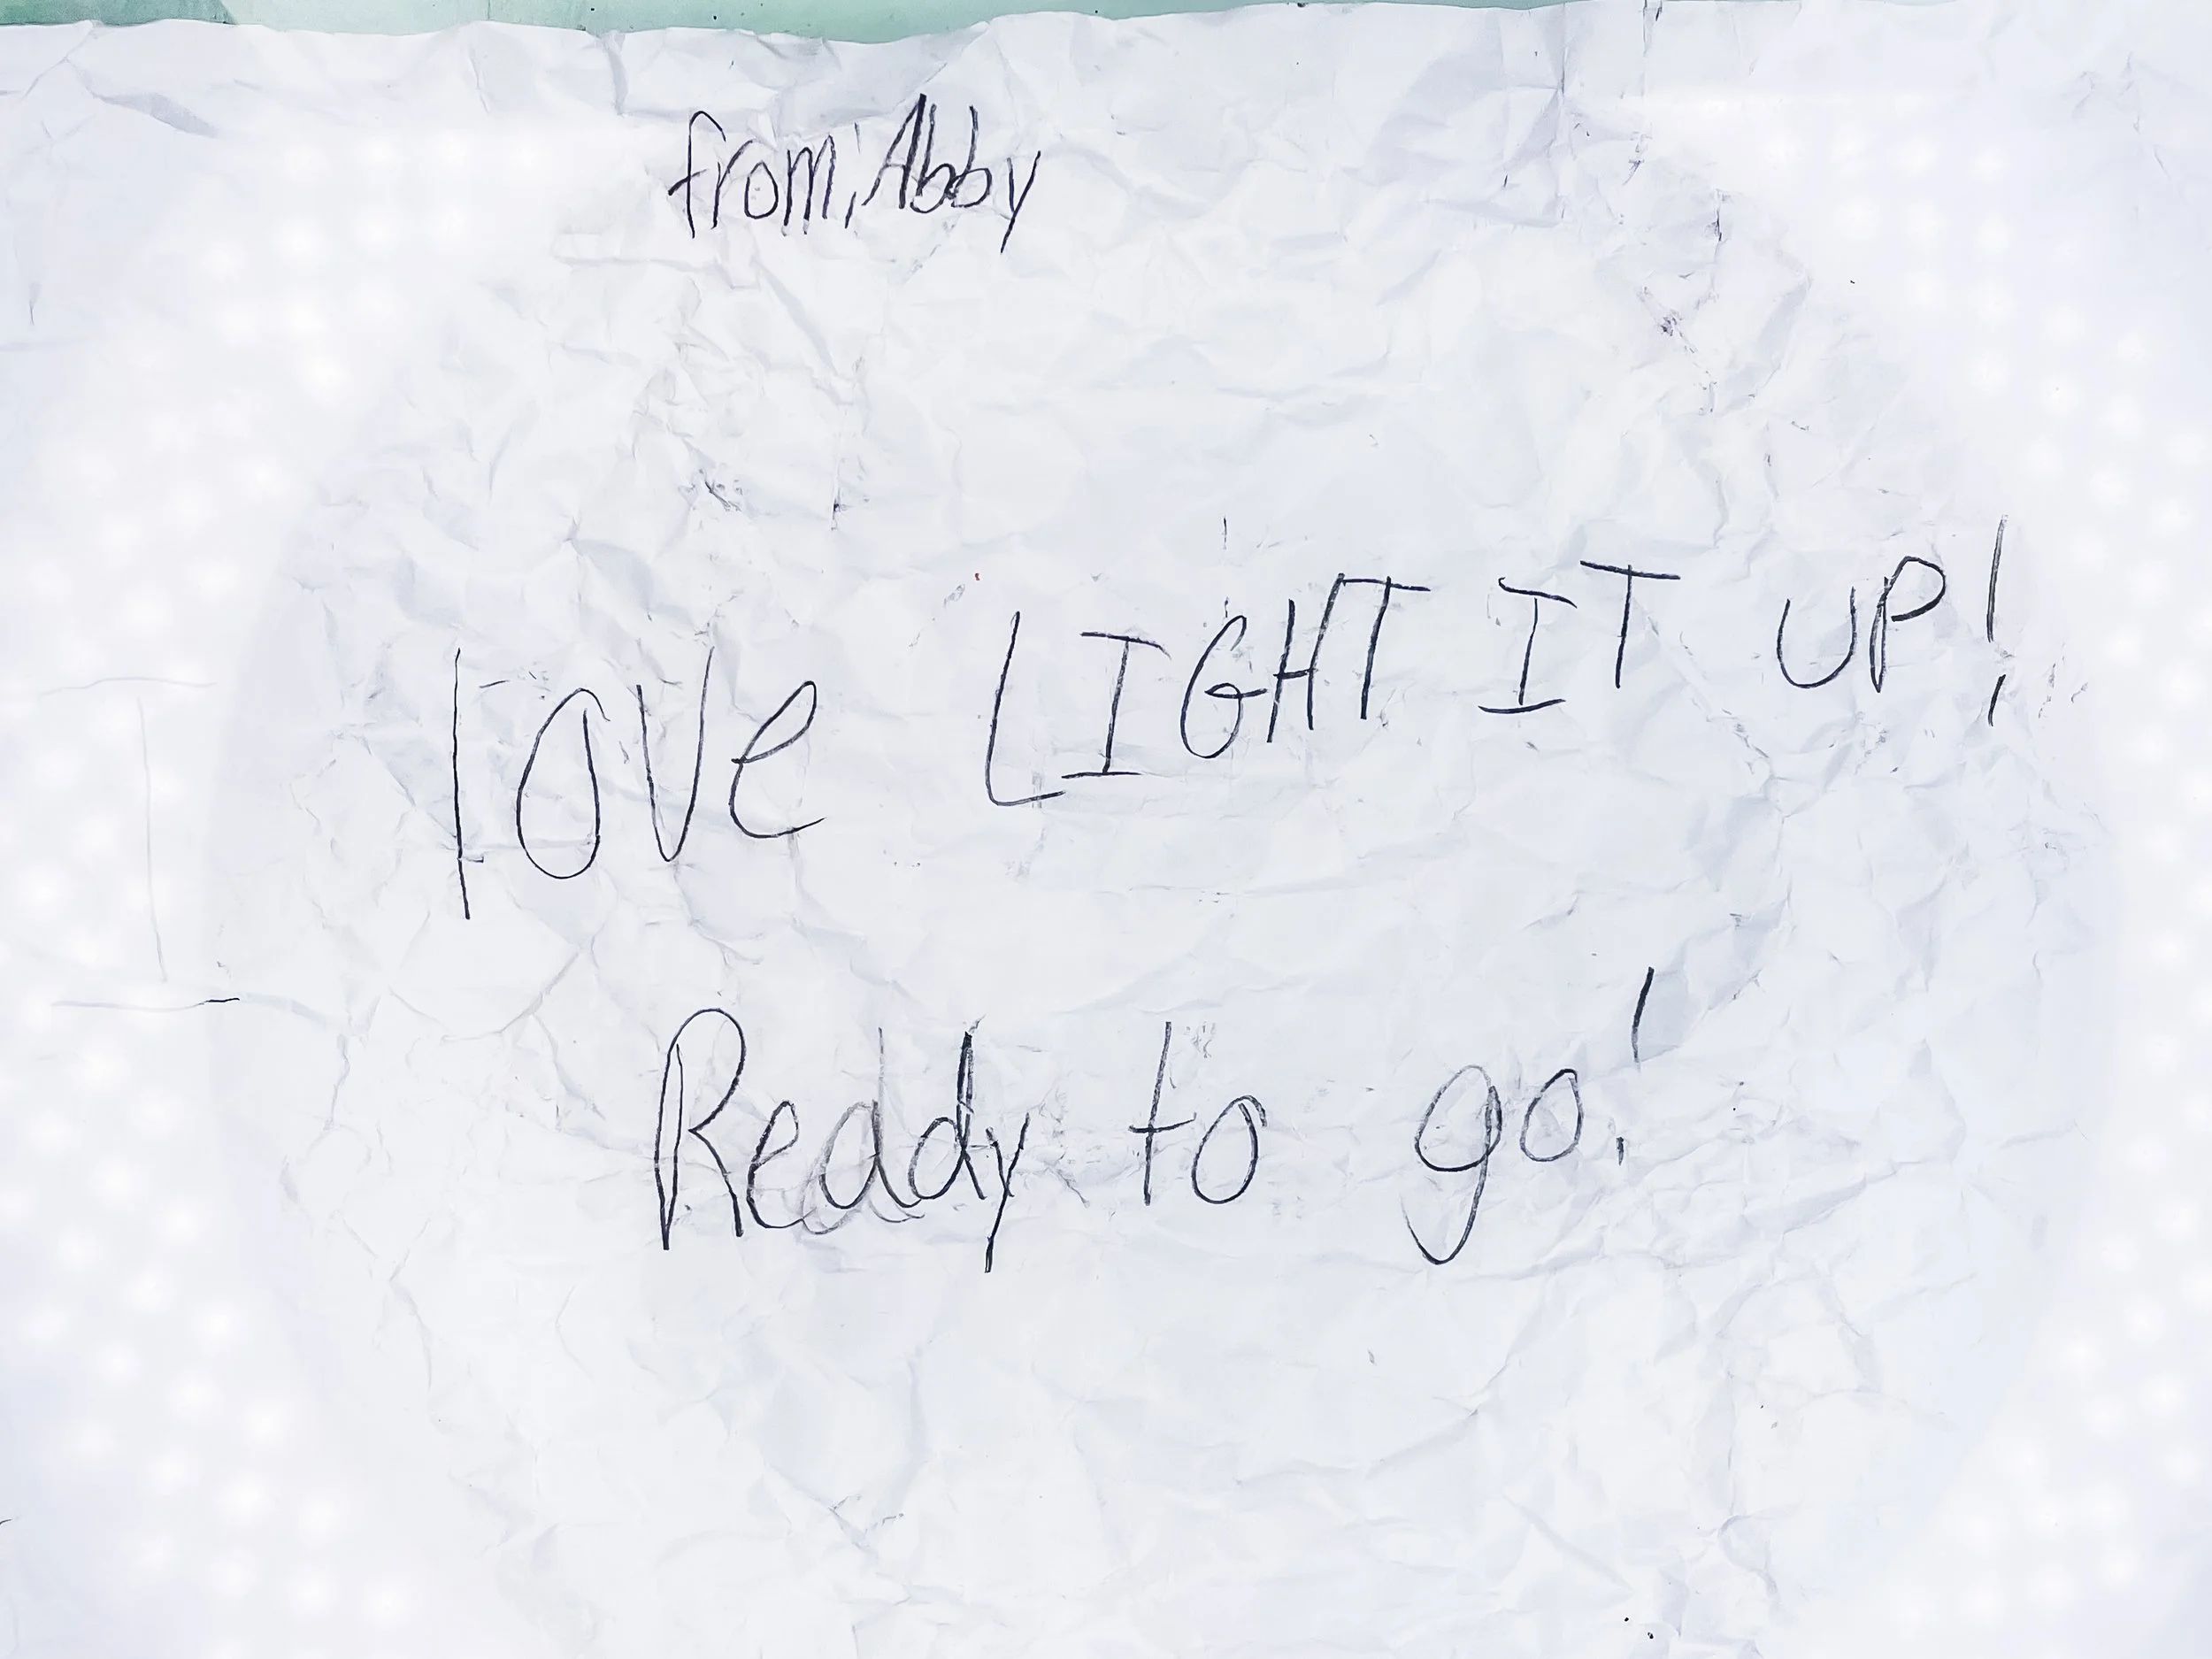 from; Abby
I love LIGHT IT UP!
Ready to go!